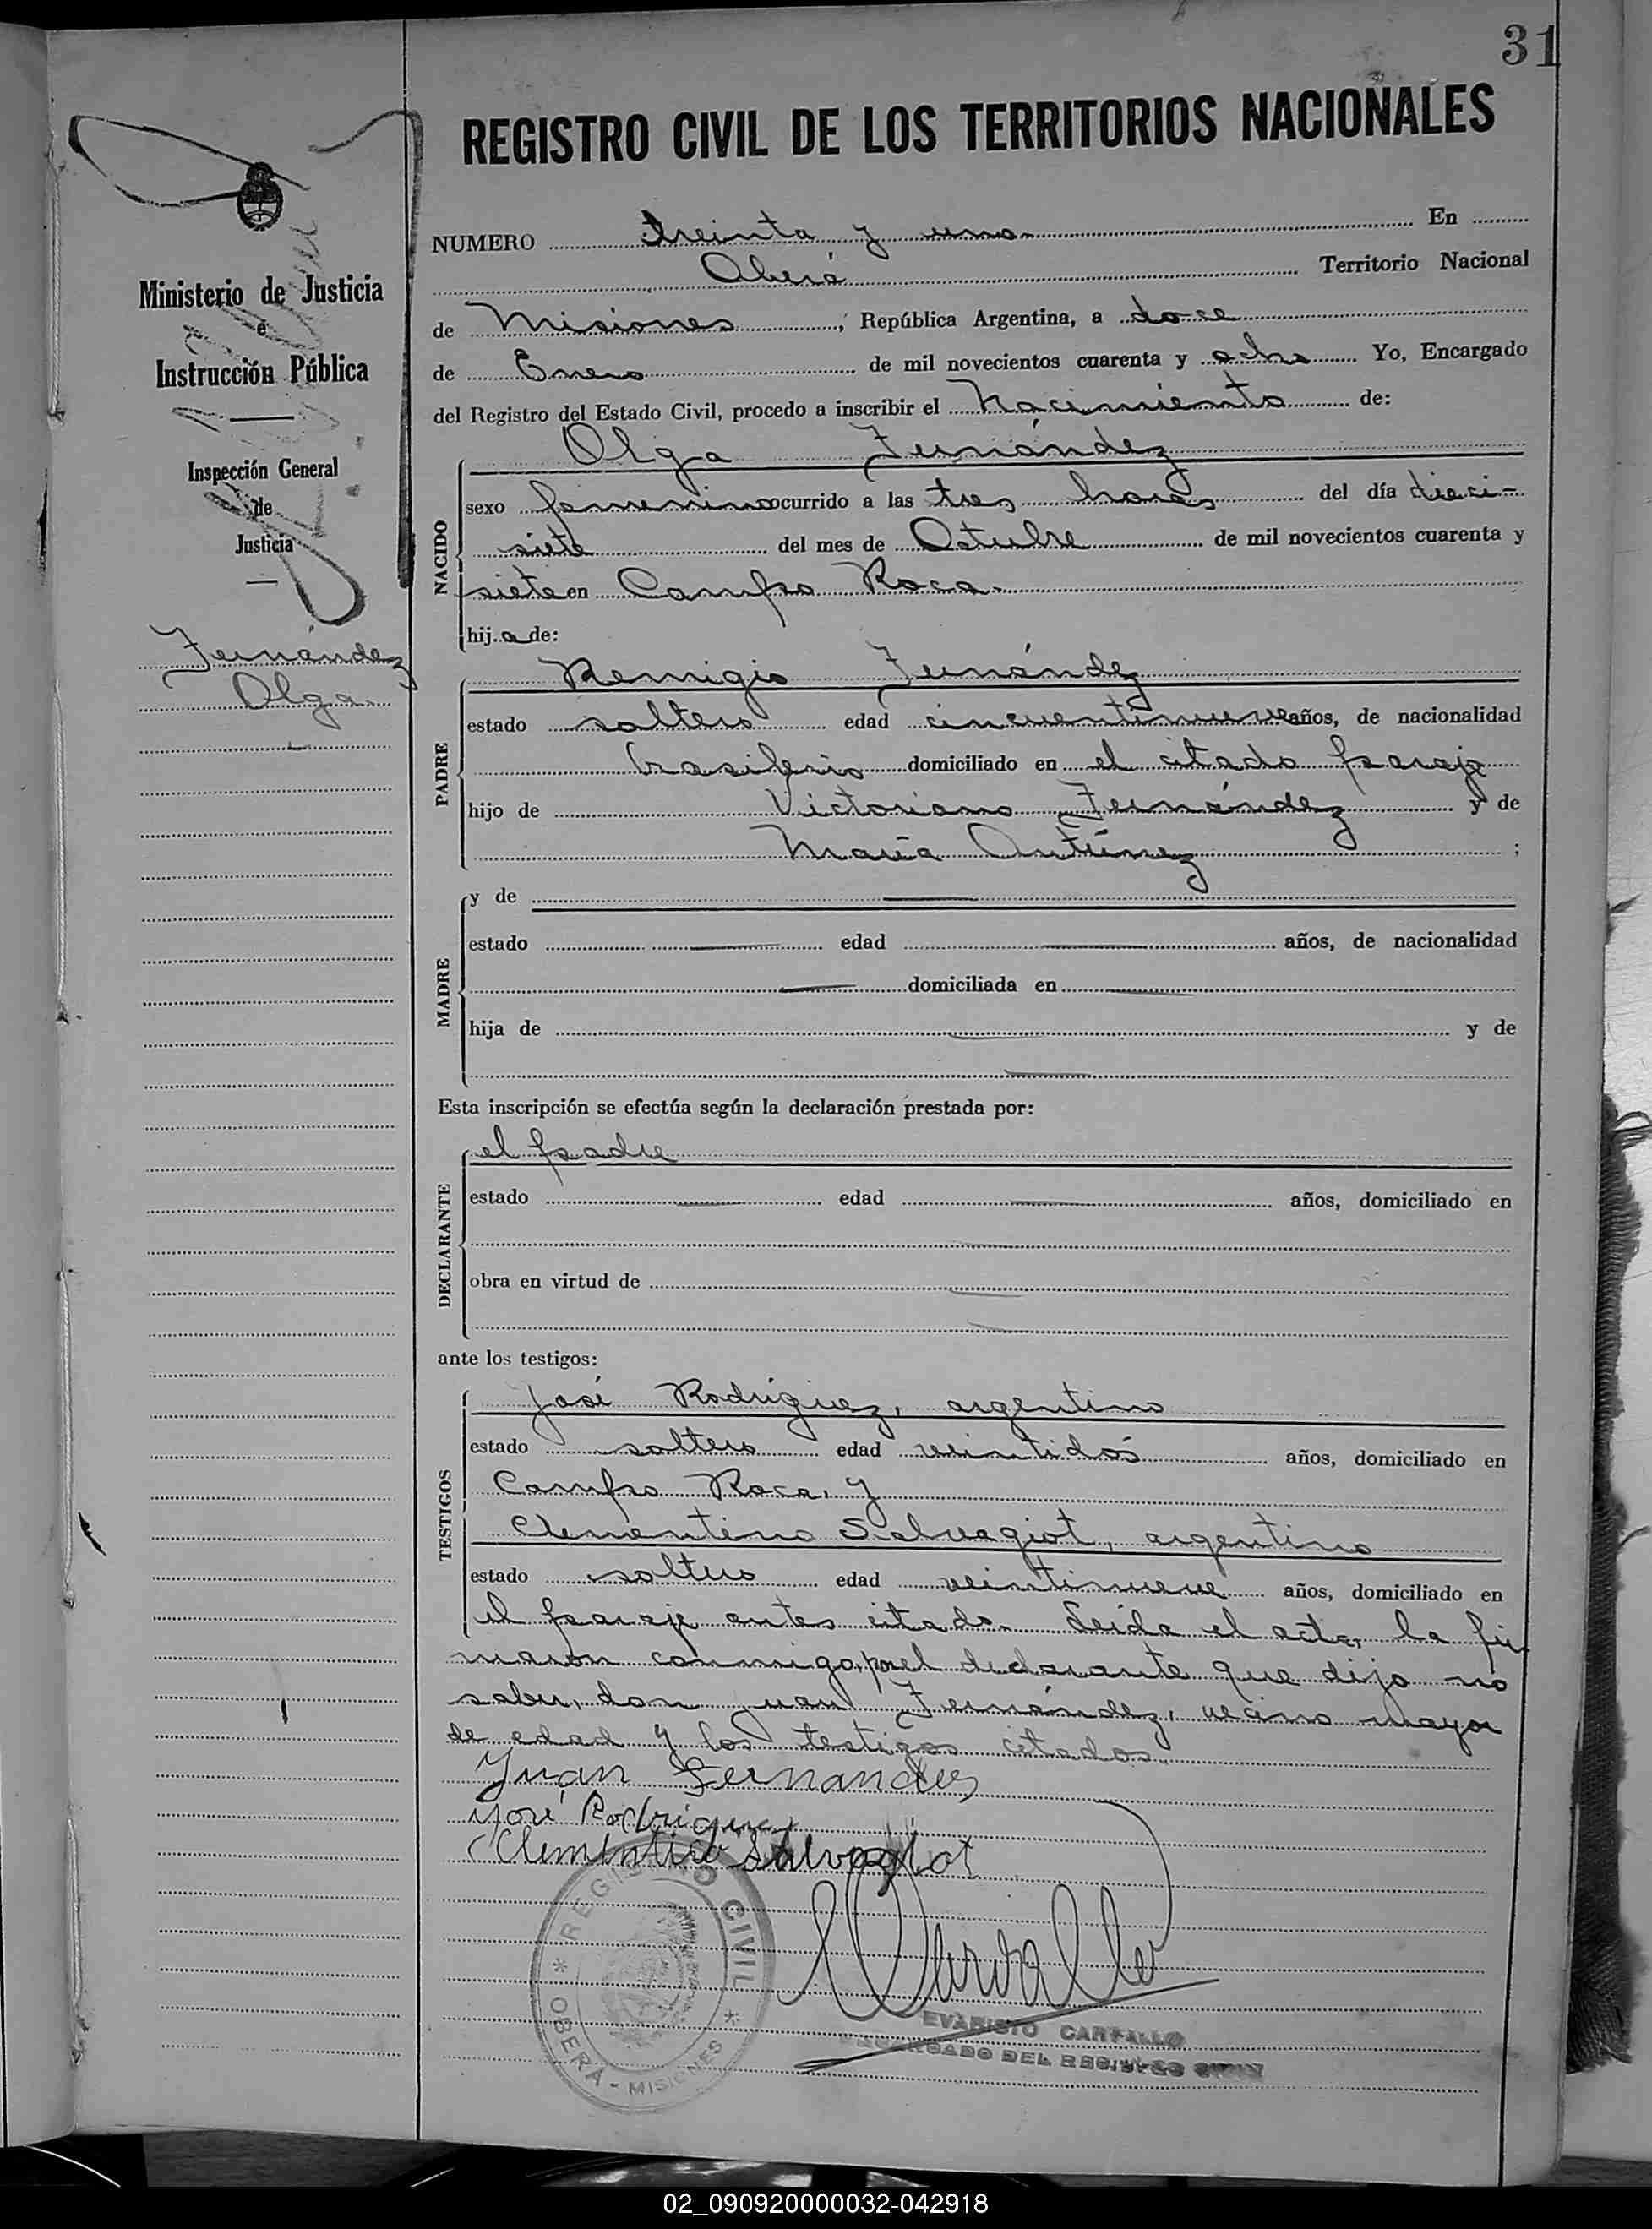 31
REGISTRO CIVIL DE LOS TERRITORIOS NACIONALES
Ministerio de Justicia
e
Instrucción Pública
Inspección General
de
Justicia
Fernández
Olga
NUMERO treinta y uno En
Oberá Territorio Nacional
de Misiones, República Argentina, a doce
de Enero de mil novecientos cuarenta y ocho Yo, Encargado
del Registro del Estado Civil, procedo a inscribir el Nacimiento de:
NACIDO
Olga Fernández
sexo femenino ocurrido a las tres horas del día dieci-
siete del mes de Octubre de mil novecientos cuarenta y
siete en Campo Roca.
hij.a de:
PADRE
Remigio Fernández
estado soltero edad cincuentinueve años, de nacionalidad
brasileño domiciliado en el citado paraje
hijo de Victoriano Fernández y de
María Antúnez ;
MADRE
y de —
estado — edad — años, de nacionalidad
— domiciliada en —
hija de — y de
—
Esta inscripción se efectúa según la declaración prestada por:
DECLARANTE
el padre
estado — edad — años, domiciliado en
—
obra en virtud de —
—
ante los testigos:
TESTIGOS
José Rodríguez, argentino
estado soltero edad veintidós años, domiciliado en
Campo Roca, y
Clementino Salvagiot, argentino
estado soltero edad veintinueve años, domiciliado en
el paraje antes citado. Leída el acta, la fir
maron conmigo, por el declarante que dijo no
saber, don Juan Fernández, vecino mayor
de edad y los testigos citados.
Juan Fernandez
José Rodriguez
Clementino Salvagiot
REGISTRO CIVIL
* OBERÁ - MISIONES *
EVARISTO CARVALLO
ENCARGADO DEL REGISTRO CIVIL
02_090920000032-042918